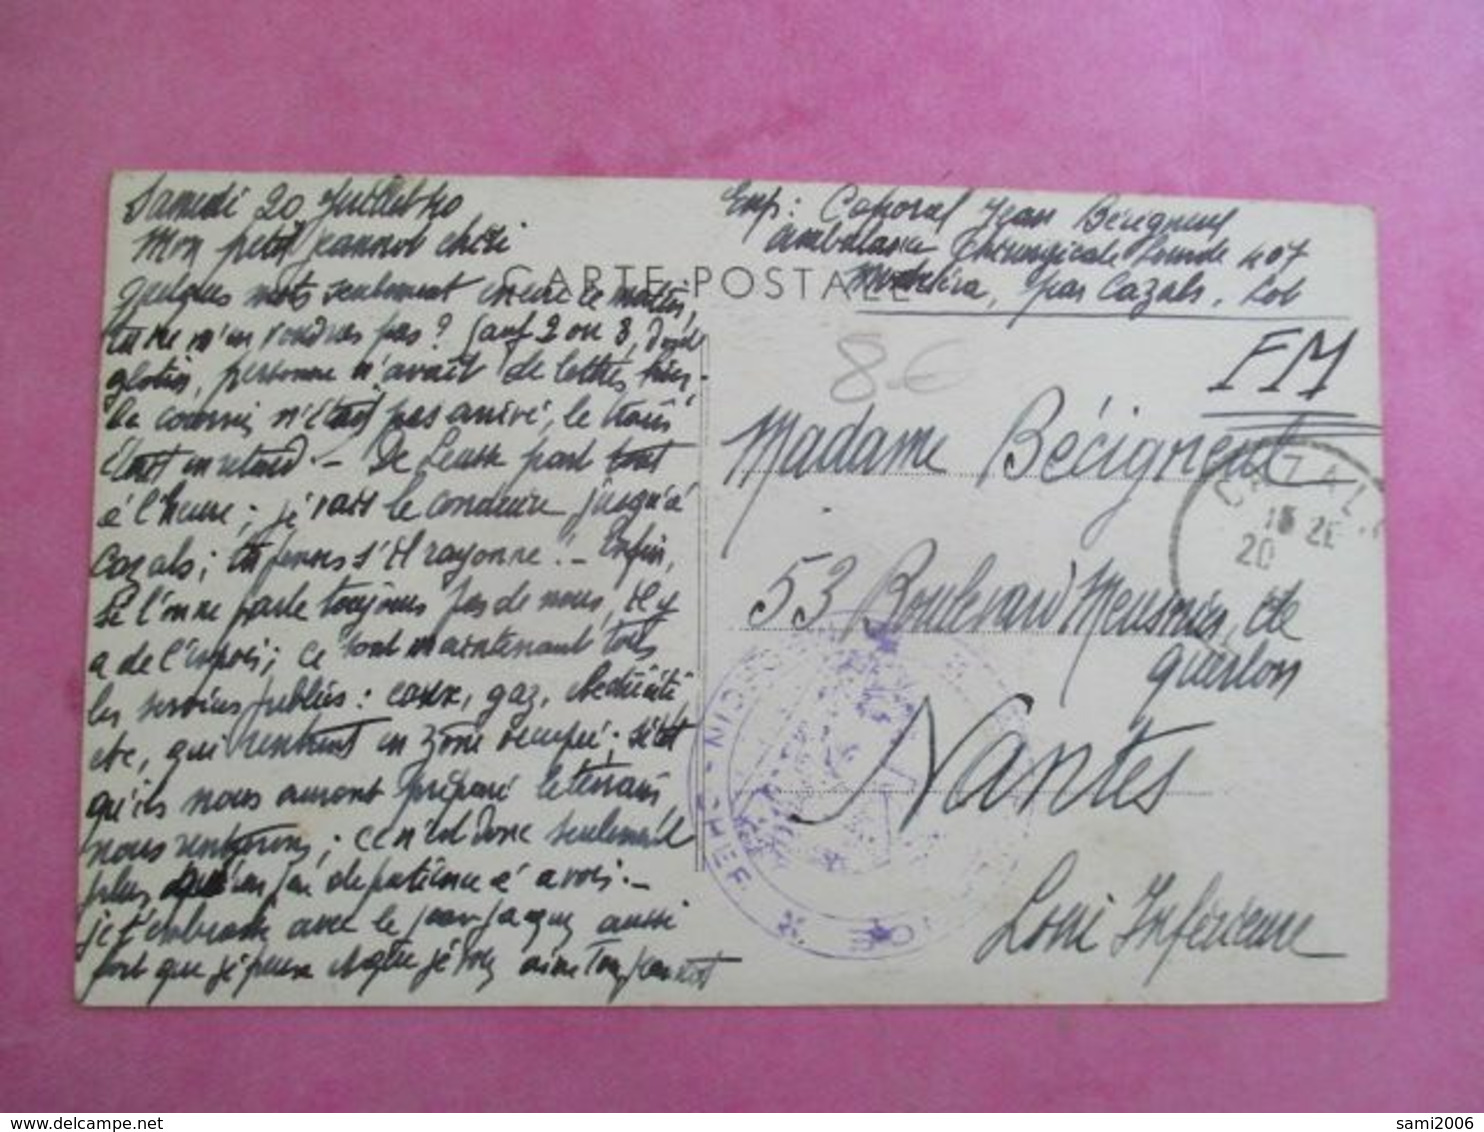 Samedi 20 Juillet 40
Mon petit Jeannot chéri
quelques mots seulement encore ce matin,
tu ne m'en voudras pas ? Sauf 2 ou 3, dont
personne n'avait de lettres hier.
Le courrier n'était pas arrivé, le train
était en retard. - De part tout
à l'heure ; je vais le conduire jusqu'à
Cazals ; tu penses s'il rayonne ! - Enfin,
si l'on ne parle toujours pas de nous, il y
a de l'espoir ; ce sont maintenant tous
les services publics : eaux, gaz, électricité
etc, qui rentrent en zone occupée ;
qu'ils nous auront préparé le terrain
nous rentrerons ; ce n'est donc seulement
plus qu'un peu de patience à avoir. -
je t'embrasse avec le Jean-Jacques aussi
fort que je pense et que je vous aime Ton Jeannot
CARTE POSTALE
Exp : Caporal Jean Bécigneul
Ambulance Chirurgicale Lourde 407
par Cazals, Lot
8 €
FM
Madame Bécigneul
53 Boulevard Meusnier de
Querlon
Nantes
Loire Inférieure
CAZALS
20
delcampe.net
sami2006